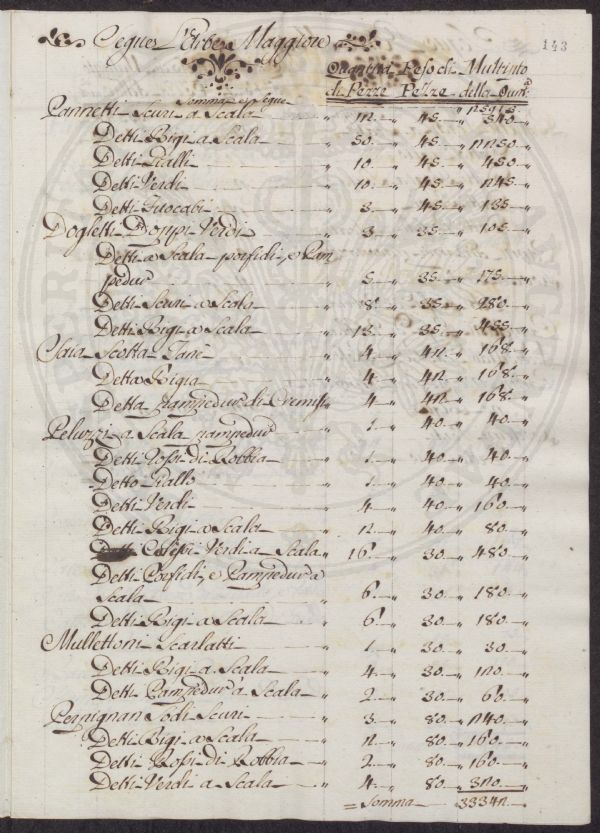 143
Segue L'Erbe Maggiore
Quantità di Pezze
Peso di Pezze
Multinto della Quantà
Somma, e segue 25913
Pannetti Scuri a Scala 12 45 540
Detti Bigi a Scala 50 45 2250
Detti Gialli 10 45 450
Detti Verdi 10 45 245
Detti Fuocati 3 45 135
Dogletti Doppi Verdi 3 35 105
Detti a Scala porfidi, e Pam
pedur 5 35 175
Detti Scuri a Scala 8 35 280
Detti Bigi a Scala 13 35 455
Saia Scotta Tanè 4 42 168
Detta Bigia 4 42 168
Detta pampedur di Cremisi 4 42 168
Peluzzi a Scala pampedur 1 40 40
Detti Rossi di Robbia 1 40 40
Detto Giallo 1 40 40
Detti Verdi 4 40 160
Detti Bigi a Scala 2 40 80
Verdi a Scala 16 30 480
Detti Porfidi, e Pampedur a
Scala 6 30 180
Detti Bigi a Scala 6 30 180
Mullettoni Scarlatti 1 30 30
Detti Bigi a Scala 4 30 120
Detti Pampedur a Scala 2 30 60
Perpignan Sodi Scuri 3 80 240
Detti Bigi a Scala 2 80 160
Detti Rossi di Robbia 2 80 160
Detti Verdi a Scala 4 80 320
= Somma 33342